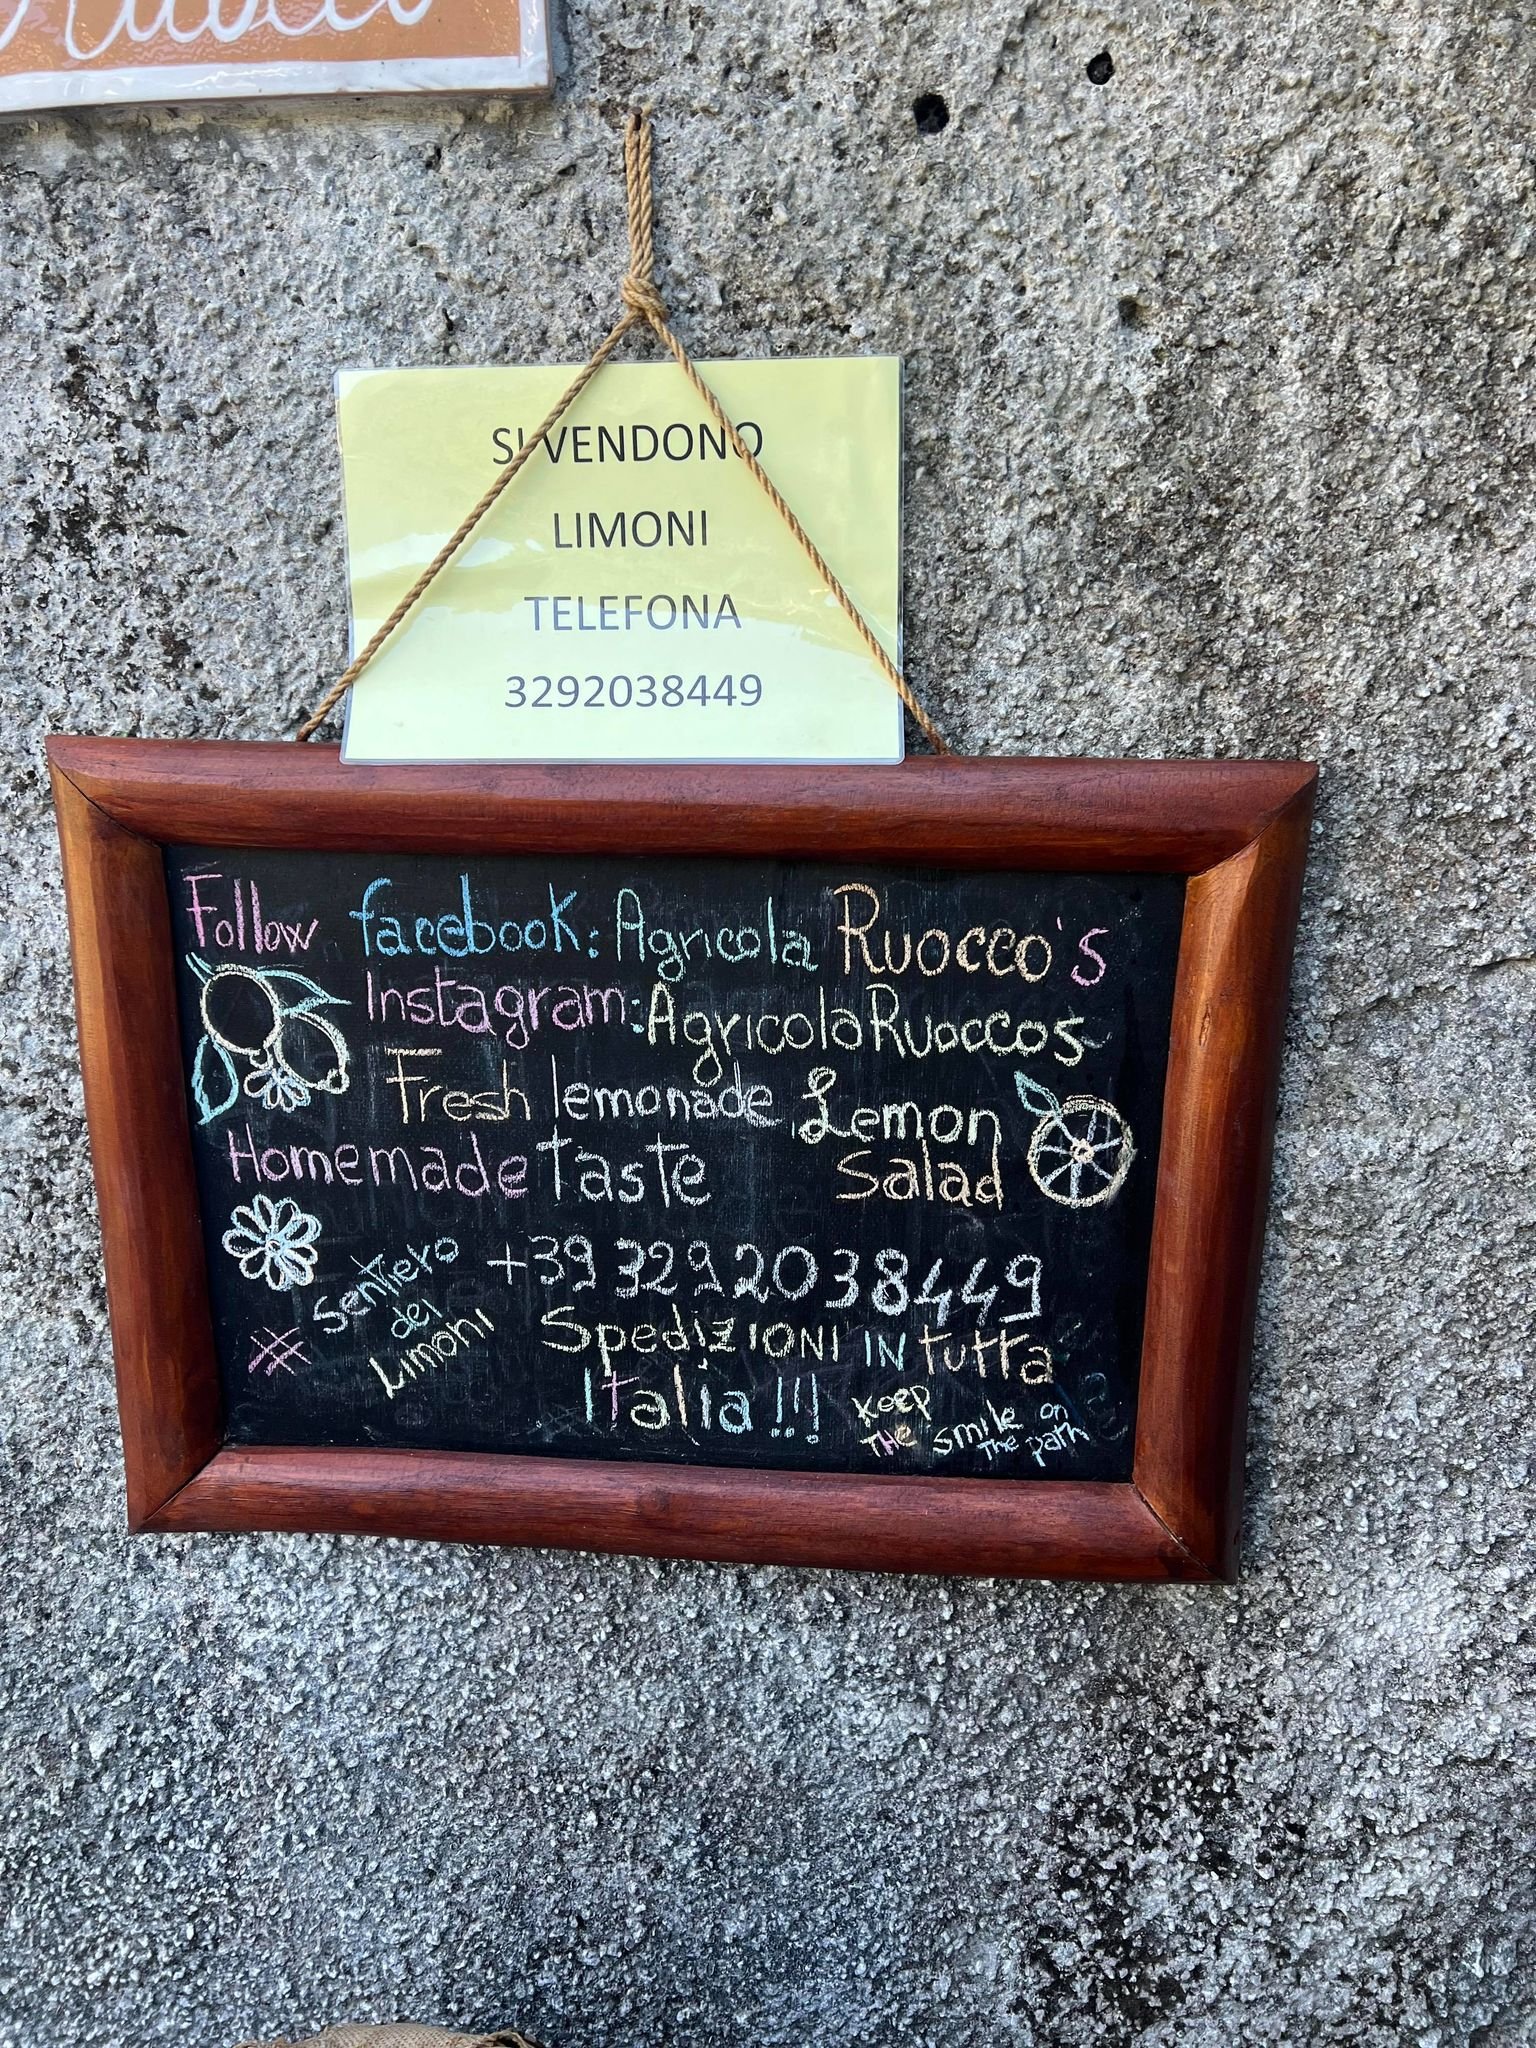 Ruocco
SI VENDONO
LIMONI
TELEFONA
3292038449
Follow facebook: Agricola Ruocco's
Instagram: AgricolaRuoccos
Fresh lemonade, Lemon
Homemade taste Salad
+39 3292038449
# Sentiero
dei
Limoni
Spedizioni in tutta
Italia!!!
Keep
THE smile on
The path